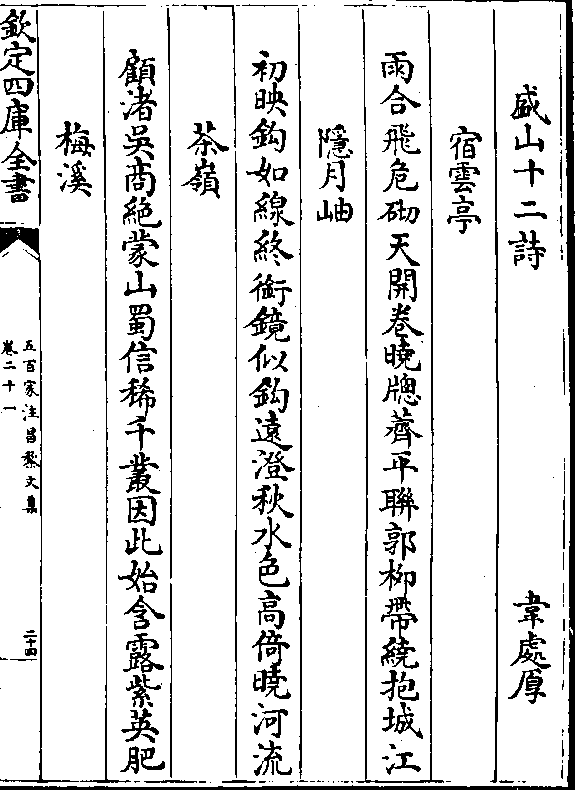 盛山十二詩　韋處厚
宿雲亭
雨合飛危砌天開卷曉牕薺平聯郭柳帶繞抱城江
隱月岫
初映鈎如線終銜鏡似鈎遠澄秋水色高倚曉河流
茶嶺
顧渚吳商絶蒙山蜀信稀千叢因此始含露紫英肥
梅溪
欽定四庫全書
五百家注昌黎文集
卷二十一
二十四